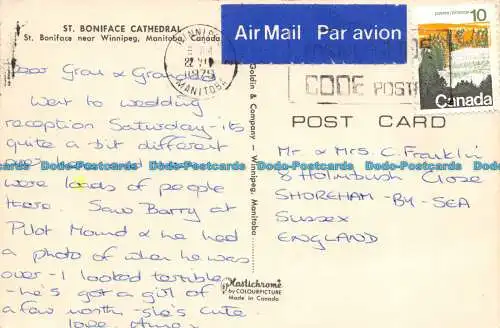 ST. BONIFACE CATHEDRAL
St. Boniface near Winnipeg, Manitoba, Canada
Dear Gran &
Went to wedding
reception Saturday - its
quite a bit different
were loads of people
there. Saw Barry at
Pilot Mound & he had
a photo of when he was
over - I looked terrible -
he's got a girl of
a few months - she's cute
love
WINNIPEG
22 VI
1979
MANITOBA
Air Mail Par avion
CODE POSTAL
10
Canada
Goldin & Company - Winnipeg, Manitoba
POST CARD
Mr & Mrs C. Franklin
8 Holmbush Close
SHOREHAM - BY - SEA
SUSSEX
ENGLAND
Plastichrome
by COLOURPICTURE
Made in Canada
Dodo-Postcards Dodo-Postcards Dodo-Postcards Dodo-Postcards Dodo-Postcards